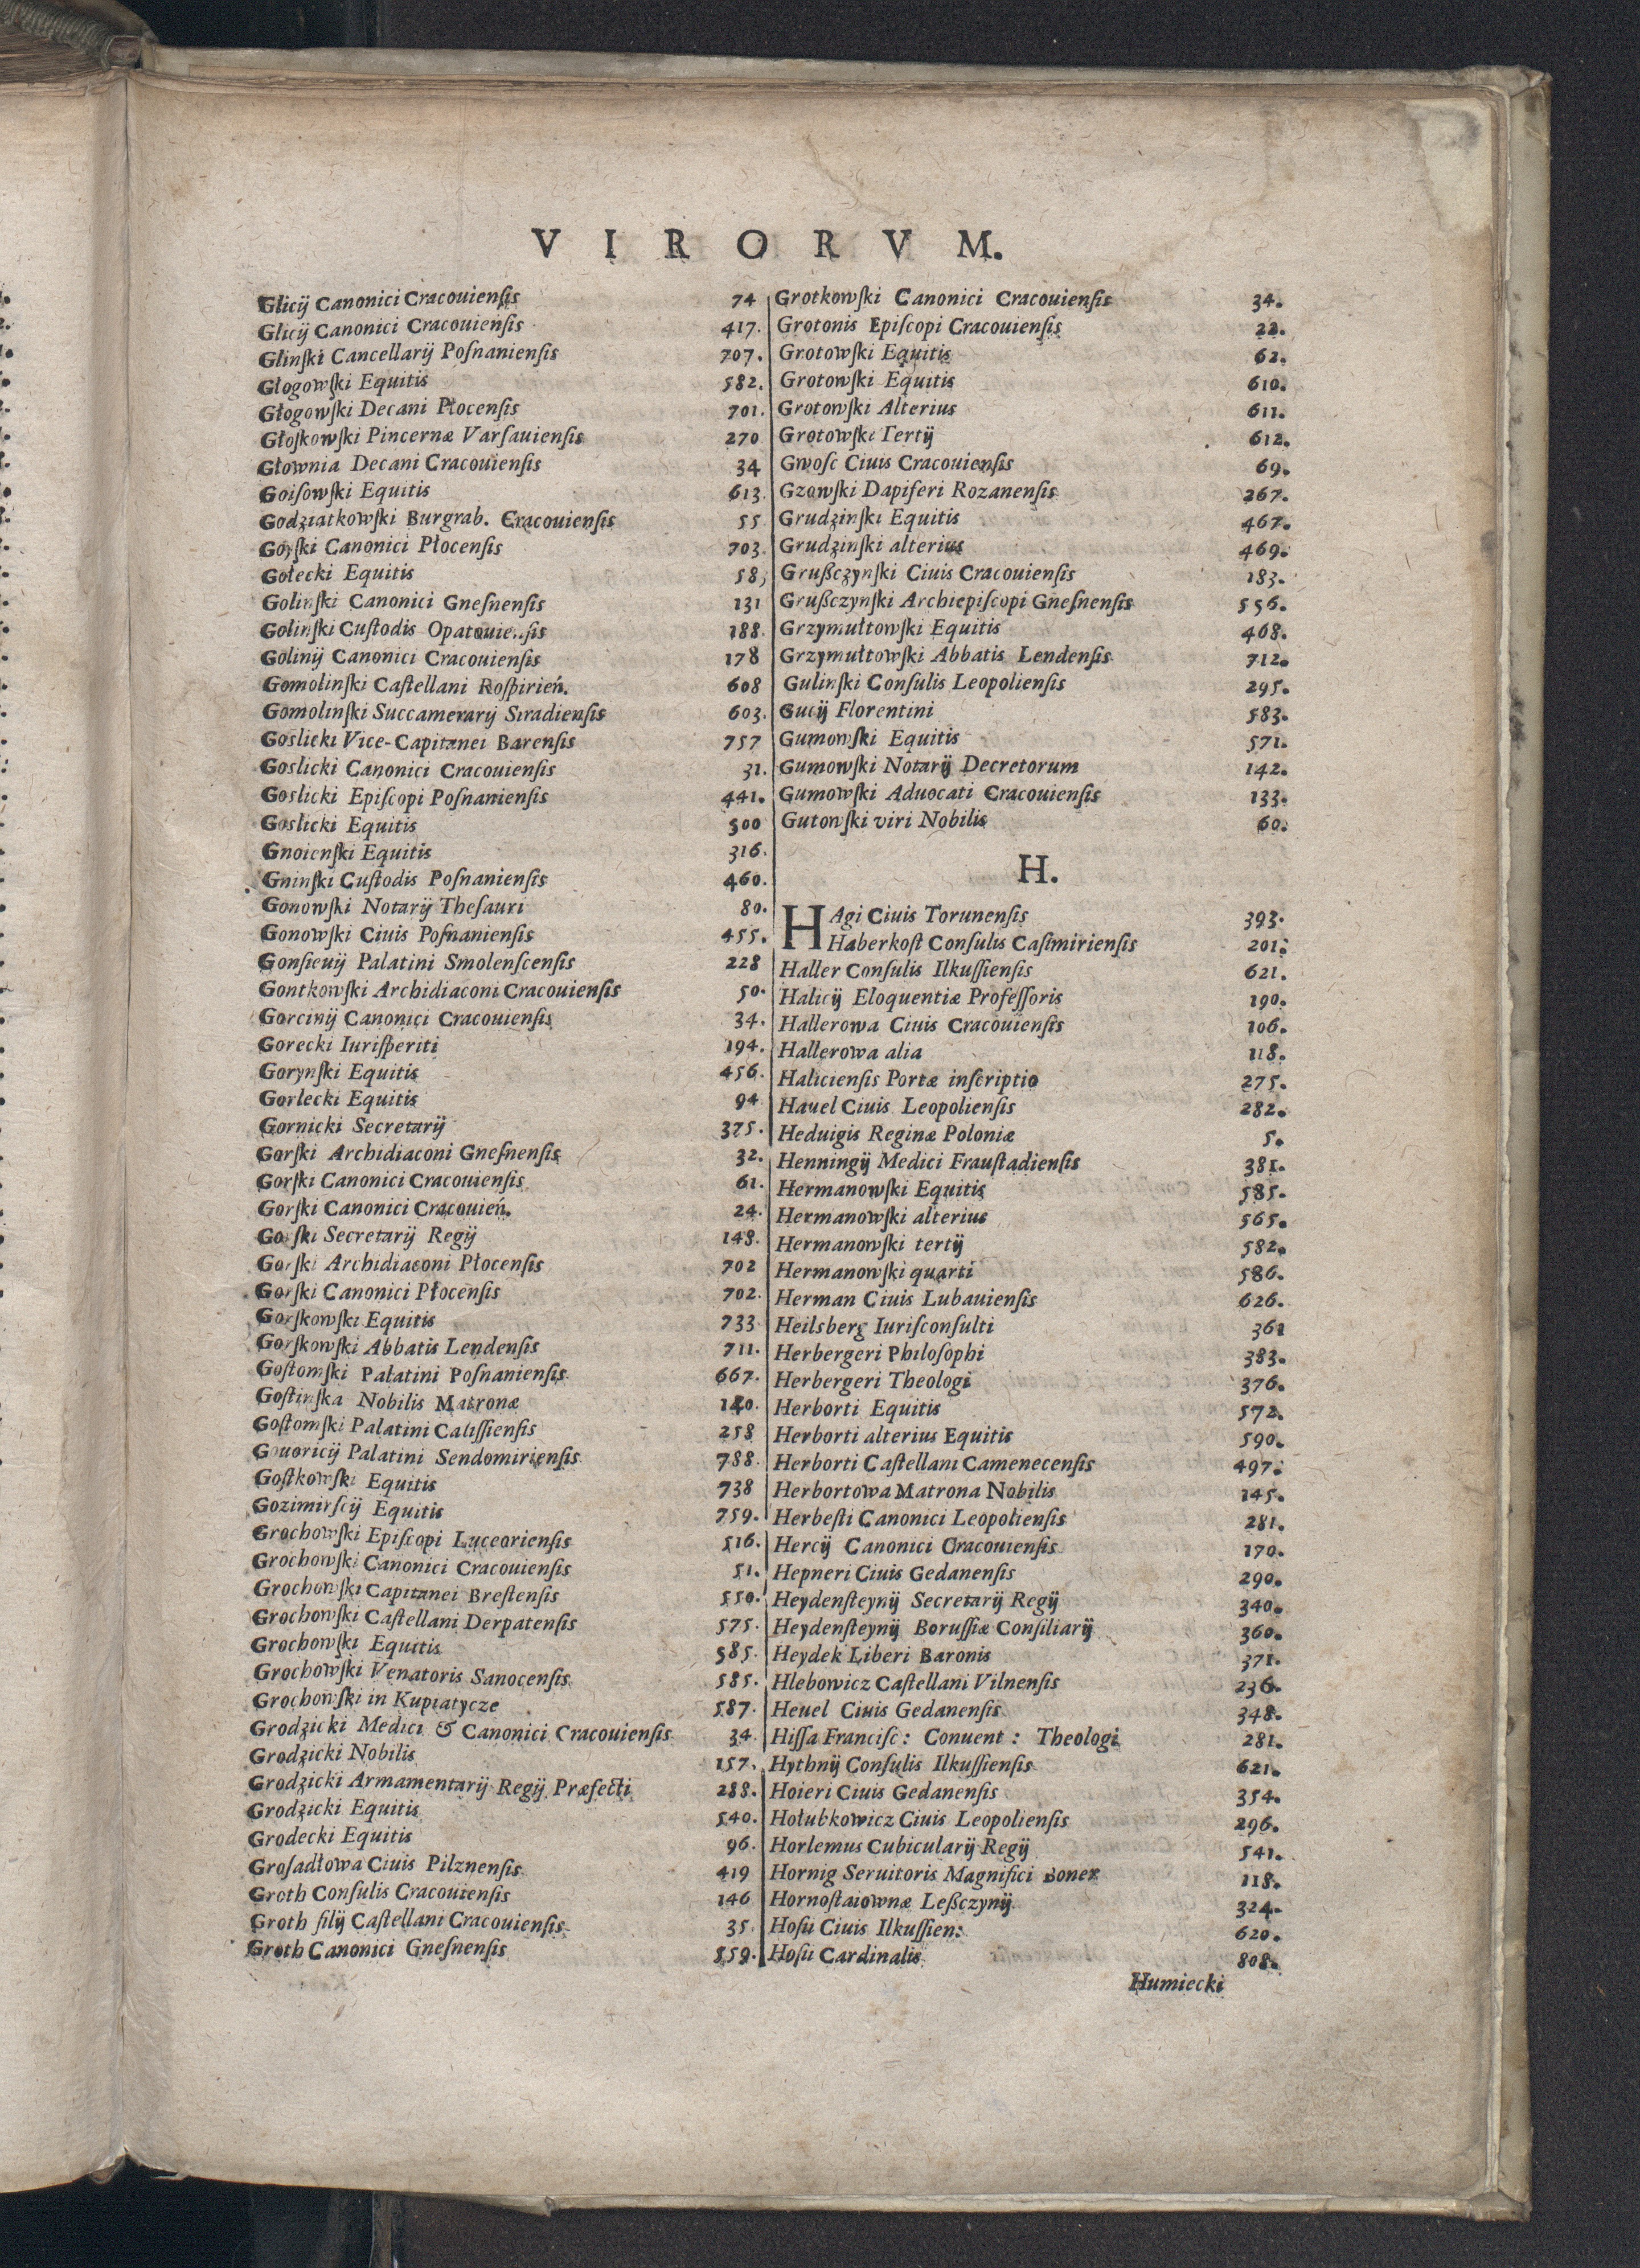 VIRORVM.
Glicij Canonici Cracouienſis 74
Glicij Canonici Cracouienſis 417.
Glinſki Cancellarij Poſnanienſis 707.
Głogowſki Equitis 582.
Głogowſki Decani Płocenſis 701.
Głoſkowſki Pincernæ Varſauienſis 270
Głownia Decani Cracouienſis 34
Goiſowſki Equitis 613.
Godziatkowſki Burgrab. Cracouienſis 55
Gorſki Canonici Płocenſis 703
Gołecki Equitis
Golinſki Canonici Gneſnenſis 131
Golinſki Cuſtodis 188.
Golinij Canonici Cracouienſis 178
Gomolinſki Caſtellani Roſpirień. 608
Gomolinſki Succamerarij Siradienſis 603.
Goslicki Vice-Capitanei Barenſis 757
Goslicki Canonici Cracouienſis 31.
Goslicki Epiſcopi Poſnanienſis 441.
Goslicki Equitis 500
Gnoienſki Equitis 316.
Gninſki Cuſtodis Poſnanienſis 460.
Gonowſki Notarij Theſauri 80.
Gonowſki Ciuis Poſnanienſis 455.
Gonſieuij Palatini Smolenſcenſis 228
Gontkowſki Archidiaconi Cracouienſis 50.
Gorcinij Canonici Cracouienſis 34.
Gorecki Iuriſperiti 194.
Gorynſki Equitis 456.
Gorlecki Equitis 94
Gornicki Secretarij 375.
Gorſki Archidiaconi Gneſnenſis 32.
Gorſki Canonici Cracouienſis 61.
Gorſki Canonici Cracouień. 24.
Gorſki Secretarij Regij 148.
Gorſki Archidiaconi Płocenſis 702
Gorſki Canonici Płocenſis 702.
Gorſkowſki Equitis 733
Gorſkowſki Abbatis Lendenſis 711.
Goſtomſki Palatini Poſnanienſis 667.
Goſtinſka Nobilis Matronæ 140.
Goſtomſki Palatini Caliſſienſis 258
Gouoricij Palatini Sendomirienſis 788.
Goſtkowſki Equitis 738
Gozimirſcij Equitis 759.
Grochowſki Epiſcopi Luceorienſis 516.
Grochowſki Canonici Cracouienſis 51.
Grochowſki Capitanei Breſtenſis 550.
Grochowſki Caſtellani Derpatenſis 575.
Grochowſki Equitis 585.
Grochowſki Venatoris Sanocenſis 585.
Grochowſki in Kupiatycze 587.
Grodzicki Medici & Canonici Cracouienſis 34
Grodzicki Nobilis 157.
Grodzicki Armamentarij Regij Præfecti 288.
Grodzicki Equitis 540.
Grodecki Equitis 96.
Groſadłowa Ciuis Pilznenſis 419
Groth Conſulis Cracouienſis 146
Groth filij Caſtellani Cracouienſis 35
Groth Canonici Gneſnenſis 559.
Grotkowſki Canonici Cracouienſis 34.
Grotonis Epiſcopi Cracouienſis 22.
Grotowſki Equitis 62.
Grotowſki Equitis 610.
Grotowſki Alterius 611.
Grotowſki Tertij 612.
Gwoſc Ciuis Cracouienſis 69.
Gzowſki Dapiferi Rozanenſis 267.
Grudzinſki Equitis 467.
Grudzinſki alterius 469.
Grußczynſki Ciuis Cracouienſis 183.
Grußczynſki Archiepiſcopi Gneſnenſis 556.
Grzymułtowſki Equitis 468.
Grzymułtowſki Abbatis Lendenſis 712.
Gulinſki Conſulis Leopolienſis 295.
Gucij Florentini 583.
Gumowſki Equitis 571.
Gumowſki Notarij Decretorum 142.
Gumowſki Aduocati Cracouienſis 133.
Gutowſki viri Nobilis 60.
H.
HAgi Ciuis Torunenſis 393.
Haberkoſt Conſulis Caſimirienſis 201.
Haller Conſulis Ilkuſſienſis 621.
Halicij Eloquentiæ Profeſſoris 190.
Hallerowa Ciuis Cracouienſis 106.
Hallerowa alia 118.
Halicienſis Portæ inſcriptio 275.
Hauel Ciuis Leopolienſis 282.
Heduigis Reginæ Poloniæ 5.
Henningij Medici Frauſtadienſis 381.
Hermanowſki Equitis 585.
Hermanowſki alterius 565.
Hermanowſki tertij 582.
Hermanowſki quarti 586.
Herman Ciuis Lubauienſis 626.
Heilsberg Iuriſconſulti 361
Herbergeri Philoſophi 383.
Herbergeri Theologi 376.
Herborti Equitis 572.
Herborti alterius Equitis 590.
Herborti Caſtellani Camenecenſis 497.
Herbortowa Matrona Nobilis 145.
Herbeſti Canonici Leopolienſis 281.
Hercij Canonici Cracouienſis 170.
Hepneri Ciuis Gedanenſis 290.
Heydenſteynij Secretarij Regij 340.
Heydenſteynij Boruſſiæ Conſiliarij 360.
Heydek Liberi Baronis 371.
Hlebowicz Caſtellani Vilnenſis 236.
Heuel Ciuis Gedanenſis 348.
Hiſſa Franciſc: Conuent: Theologi 281.
Hythnij Conſulis Ilkuſſienſis 621.
Hoieri Ciuis Gedanenſis 354.
Hołubkowicz Ciuis Leopolienſis 296.
Horlemus Cubicularij Regij 541.
Hornig Seruitoris Magnifici Boner 118.
Hornoſtaiownæ Leßczynij 324.
Hoſii Ciuis Ilkuſſien: 620.
Hoſii Cardinalis 808.
Humiecki